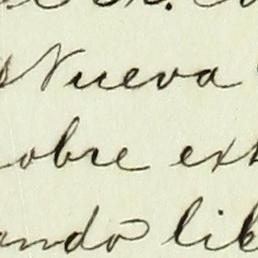 Nueva
obre ext
ando lib